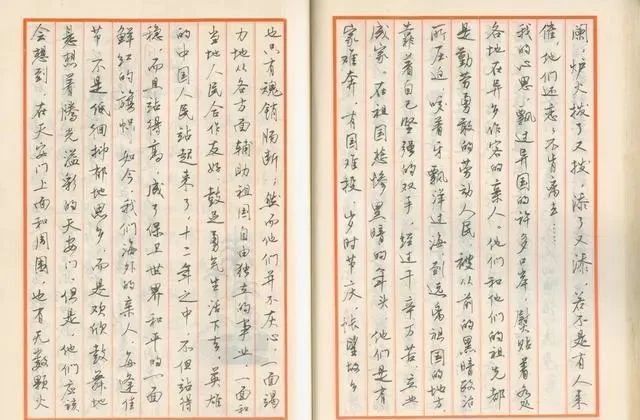 阑，炉火拨了又拨，添了又添，若不是有人来
催，他们还恋恋不肯离去……
我的心思，飘过异国的许多口岸，熨贴着各处
各地在异乡作客的亲人。他们和他们的祖先都
是勤劳勇敢的劳动人民，被从前的黑暗政治
所压迫，咬着牙飘洋过海到远离祖国的地方，
靠着自己坚强的双手，经过千辛万苦，立业
成家。在祖国悲惨黑暗的年头，他们是有
家难奔，有国难投，岁时节庆，怅望故乡
也只有魂销肠断；然而他们并不灰心，一面竭
力地从各方面辅助祖国自由独立的事业，一面和
当地人民合作友好，鼓足勇气生活下去。英雄
的中国人民站起来了，十二年之中，不但站得
稳，而且站得高，成了保卫世界和平的一面
鲜红的旗帜。如今，我们海外的亲人，每逢佳
节，不是低徊抑郁地思乡，而是欢欣鼓舞地
悬想着腾光溢彩的天安门。但是，他们应该
会想到，在天安门上面和周围，也有无数颗火